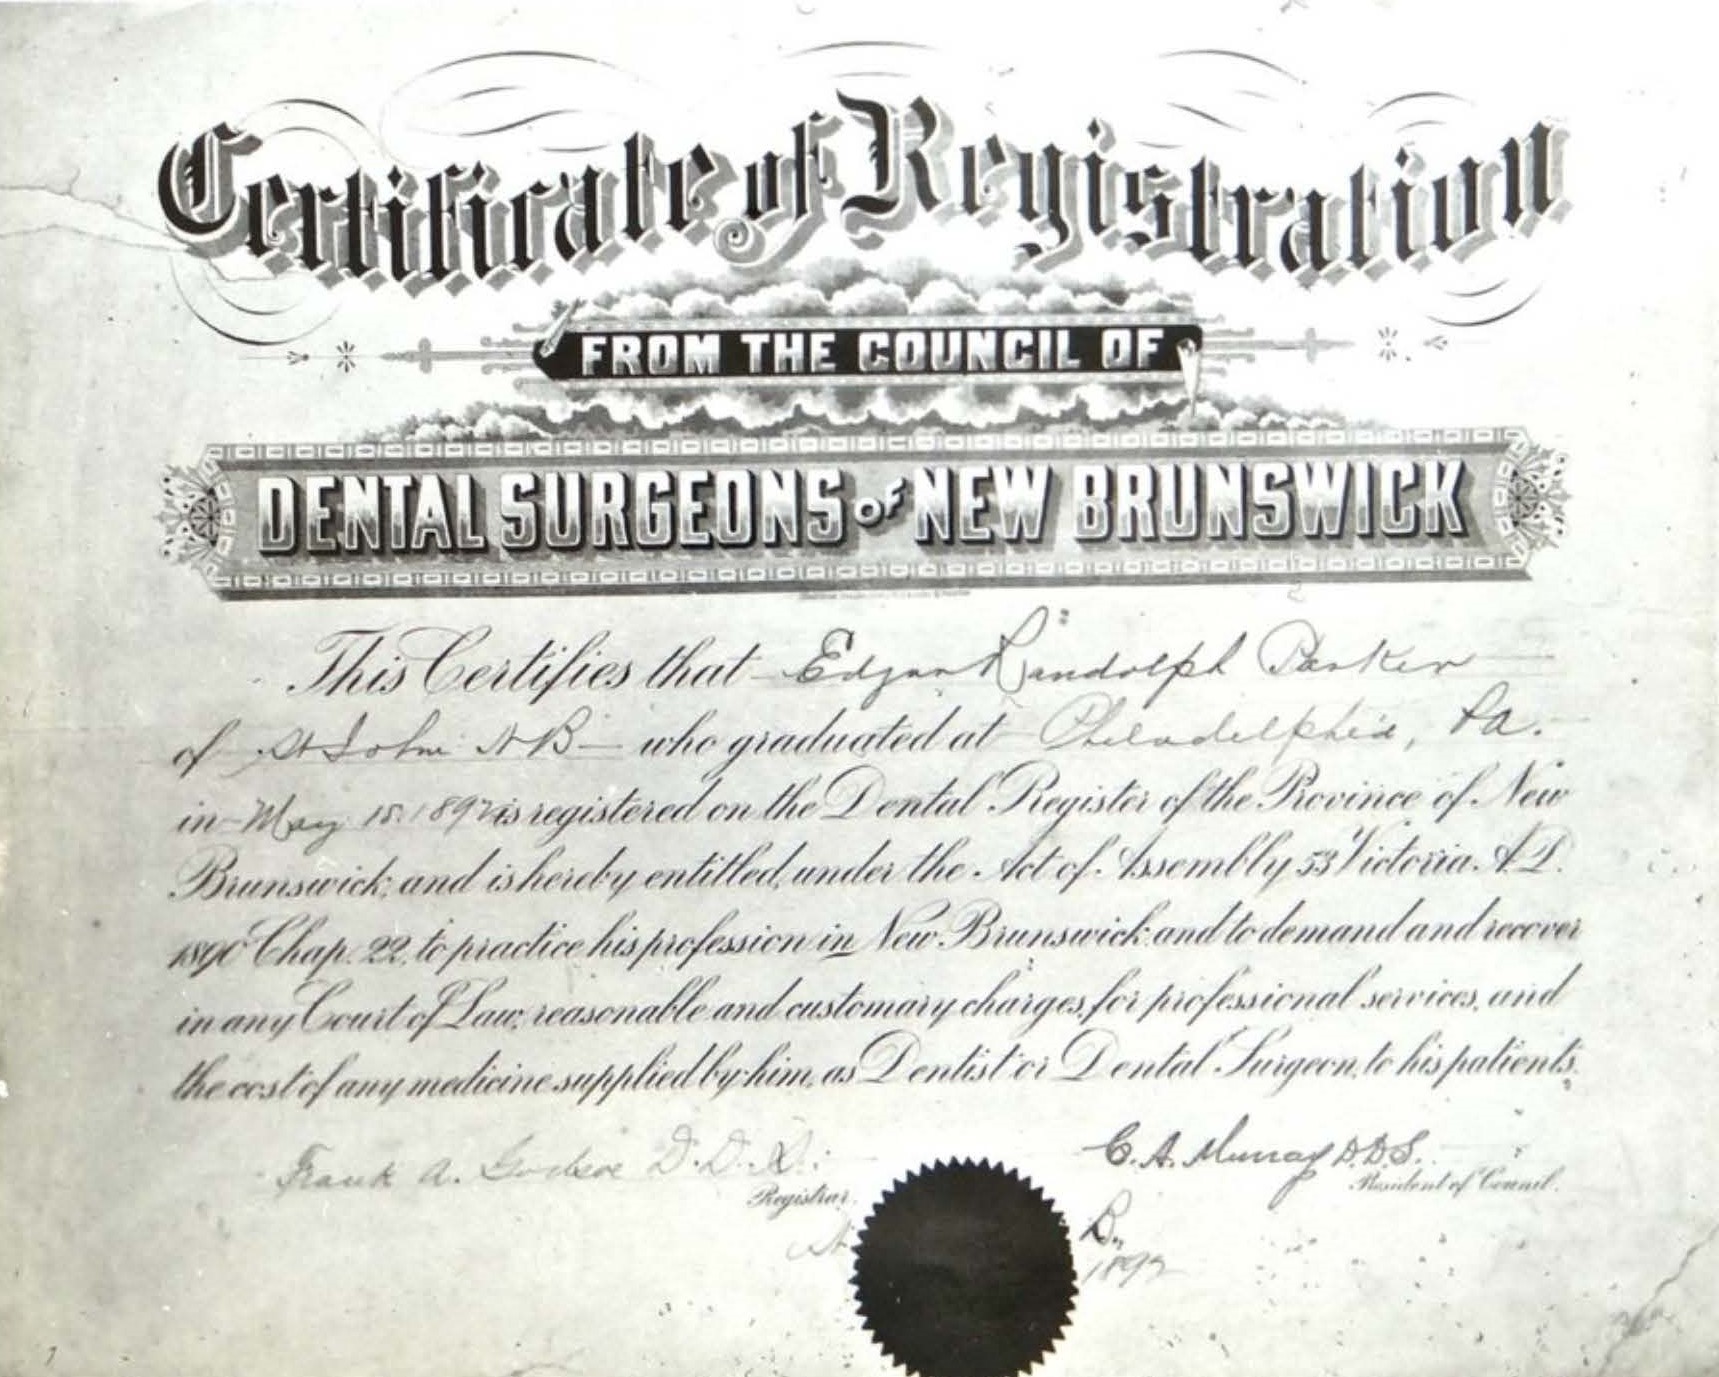 Certificate of Registration
FROM THE COUNCIL OF
DENTAL SURGEONS OF NEW BRUNSWICK
This Certifies that Edgar Randolph Parker
of St John N B who graduated at Philadelphia, Pa.
in May 15. 1892 is registered on the Dental Register of the Province of New
Brunswick, and is hereby entitled, under the Act of Assembly 53 Victoria A.D.
1890 Chap. 22, to practice his profession in New Brunswick and to demand and recover
in any Court of Law, reasonable and customary charges, for professional services, and
the cost of any medicine supplied by him, as Dentist or Dental Surgeon, to his patients.
Frank A. Godsoe D.D.S.
Registrar.
C. A. Murray D.D.S.
President of Council.
B.
1892